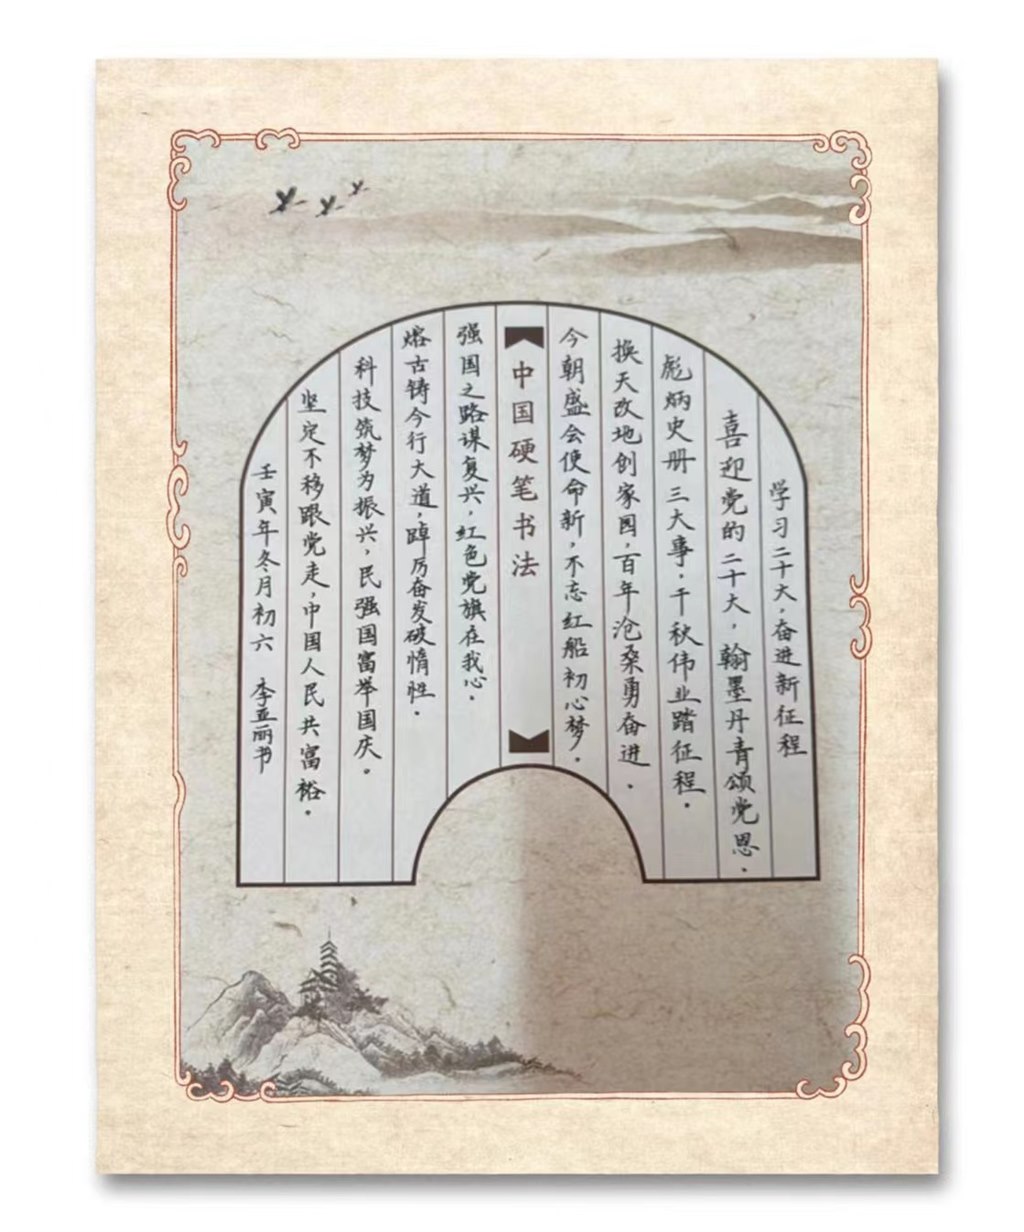 学习二十大，奋进新征程
喜迎党的二十大，翰墨丹青颂党恩．
彪炳史册三大事．千秋伟业踏征程．
换天改地创家园，百年沧桑勇奋进．
今朝盛会使命新，不忘红船初心梦．
中国硬笔书法
强国之路谋复兴，红色党旗在我心．
熔古铸今行大道，踔厉奋发破惰性．
科技筑梦为振兴，民强国富举国庆。
坚定不移跟党走，中国人民共富裕．
壬寅年冬月初六 李亚丽书